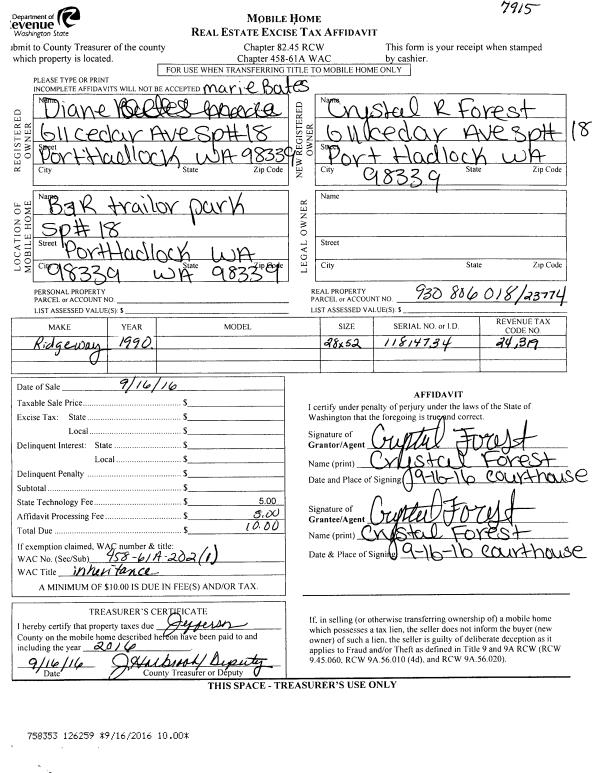 7915
Department of
Revenue
Washington State
MOBILE HOME
REAL ESTATE EXCISE TAX AFFIDAVIT
ubmit to County Treasurer of the county
which property is located.
Chapter 82.45 RCW
Chapter 458-61A WAC
This form is your receipt when stamped
by cashier.
FOR USE WHEN TRANSFERRING TITLE TO MOBILE HOME ONLY
PLEASE TYPE OR PRINT
INCOMPLETE AFFIDAVITS WILL NOT BE ACCEPTED marie Bates
REGISTERED OWNER
Name Diane
611 cedar Ave Sp# 18
Street Port Hadlock WA 98339
City State Zip Code
NEW REGISTERED OWNER
Name Crystal R Forest
611 cedar Ave Sp# 18
Street Port Hadlock WA
98339
City State Zip Code
LOCATION OF MOBILE HOME
Name B&R trailor park
Sp# 18
Street Port Hadlock WA
City 98339 State WA Zip Code 98339
LEGAL OWNER
Name
Street
City State Zip Code
PERSONAL PROPERTY
PARCEL or ACCOUNT NO.
LIST ASSESSED VALUE(S): $
REAL PROPERTY
PARCEL or ACCOUNT NO. 930 806 018/23774
LIST ASSESSED VALUE(S): $
MAKE YEAR MODEL SIZE SERIAL NO. or I.D. REVENUE TAX CODE NO.
Ridgeway 1990 28x52 11814734 24,319
Date of Sale 9/16/16
Taxable Sale Price $
Excise Tax: State $
Local $
Delinquent Interest: State $
Local $
Delinquent Penalty $
Subtotal $
State Technology Fee $ 5.00
Affidavit Processing Fee $ 5.00
Total Due $ 10.00
If exemption claimed, WAC number & title:
WAC No. (Sec/Sub) 458-61A-202(1)
WAC Title inheritance
A MINIMUM OF $10.00 IS DUE IN FEE(S) AND/OR TAX.
AFFIDAVIT
I certify under penalty of perjury under the laws of the State of
Washington that the foregoing is true and correct.
Signature of
Grantor/Agent Crystal Forest
Name (print) Crystal Forest
Date and Place of Signing 9-16-16 courthouse
Signature of
Grantee/Agent Crystal Forest
Name (print) Crystal Forest
Date & Place of Signing 9-16-16 courthouse
TREASURER'S CERTIFICATE
I hereby certify that property taxes due Jefferson
County on the mobile home described hereon have been paid to and
including the year 2016
9/16/16 J Holbrook/Deputy
Date County Treasurer or Deputy
If, in selling (or otherwise transferring ownership of) a mobile home
which possesses a tax lien, the seller does not inform the buyer (new
owner) of such a lien, the seller is guilty of deliberate deception as it
applies to Fraud and/or Theft as defined in Title 9 and 9A RCW (RCW
9.45.060, RCW 9A.56.010 (4d), and RCW 9A.56.020).
THIS SPACE - TREASURER'S USE ONLY
758353 126259 *9/16/2016 10.00*